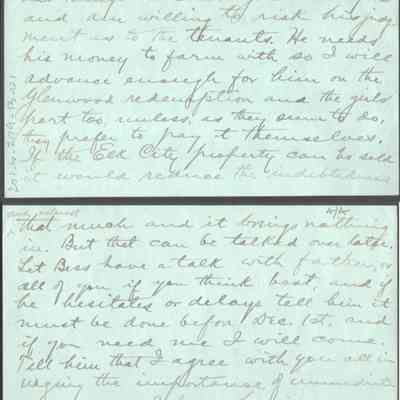 and am willing to risk his judg
ment as to the tenants. He needs
his money to farm with so I will
advance enough for him on the
Glenwood redemption and the girls
part too, unless, as they seem to do,
they prefer to pay it themselves.
If the Elk City property can be sold
it would reduce the indebtedness
and interest
that much and it brings nothing
in. But that can be talked over later.
Let Bess have a talk with father, or
all of you if you think best, and if
he hesitates or delays tell him it
must be done before Dec. 1st, and
if you need me I will come.
Tell him that I agree with you all in
urging the importance of immediate